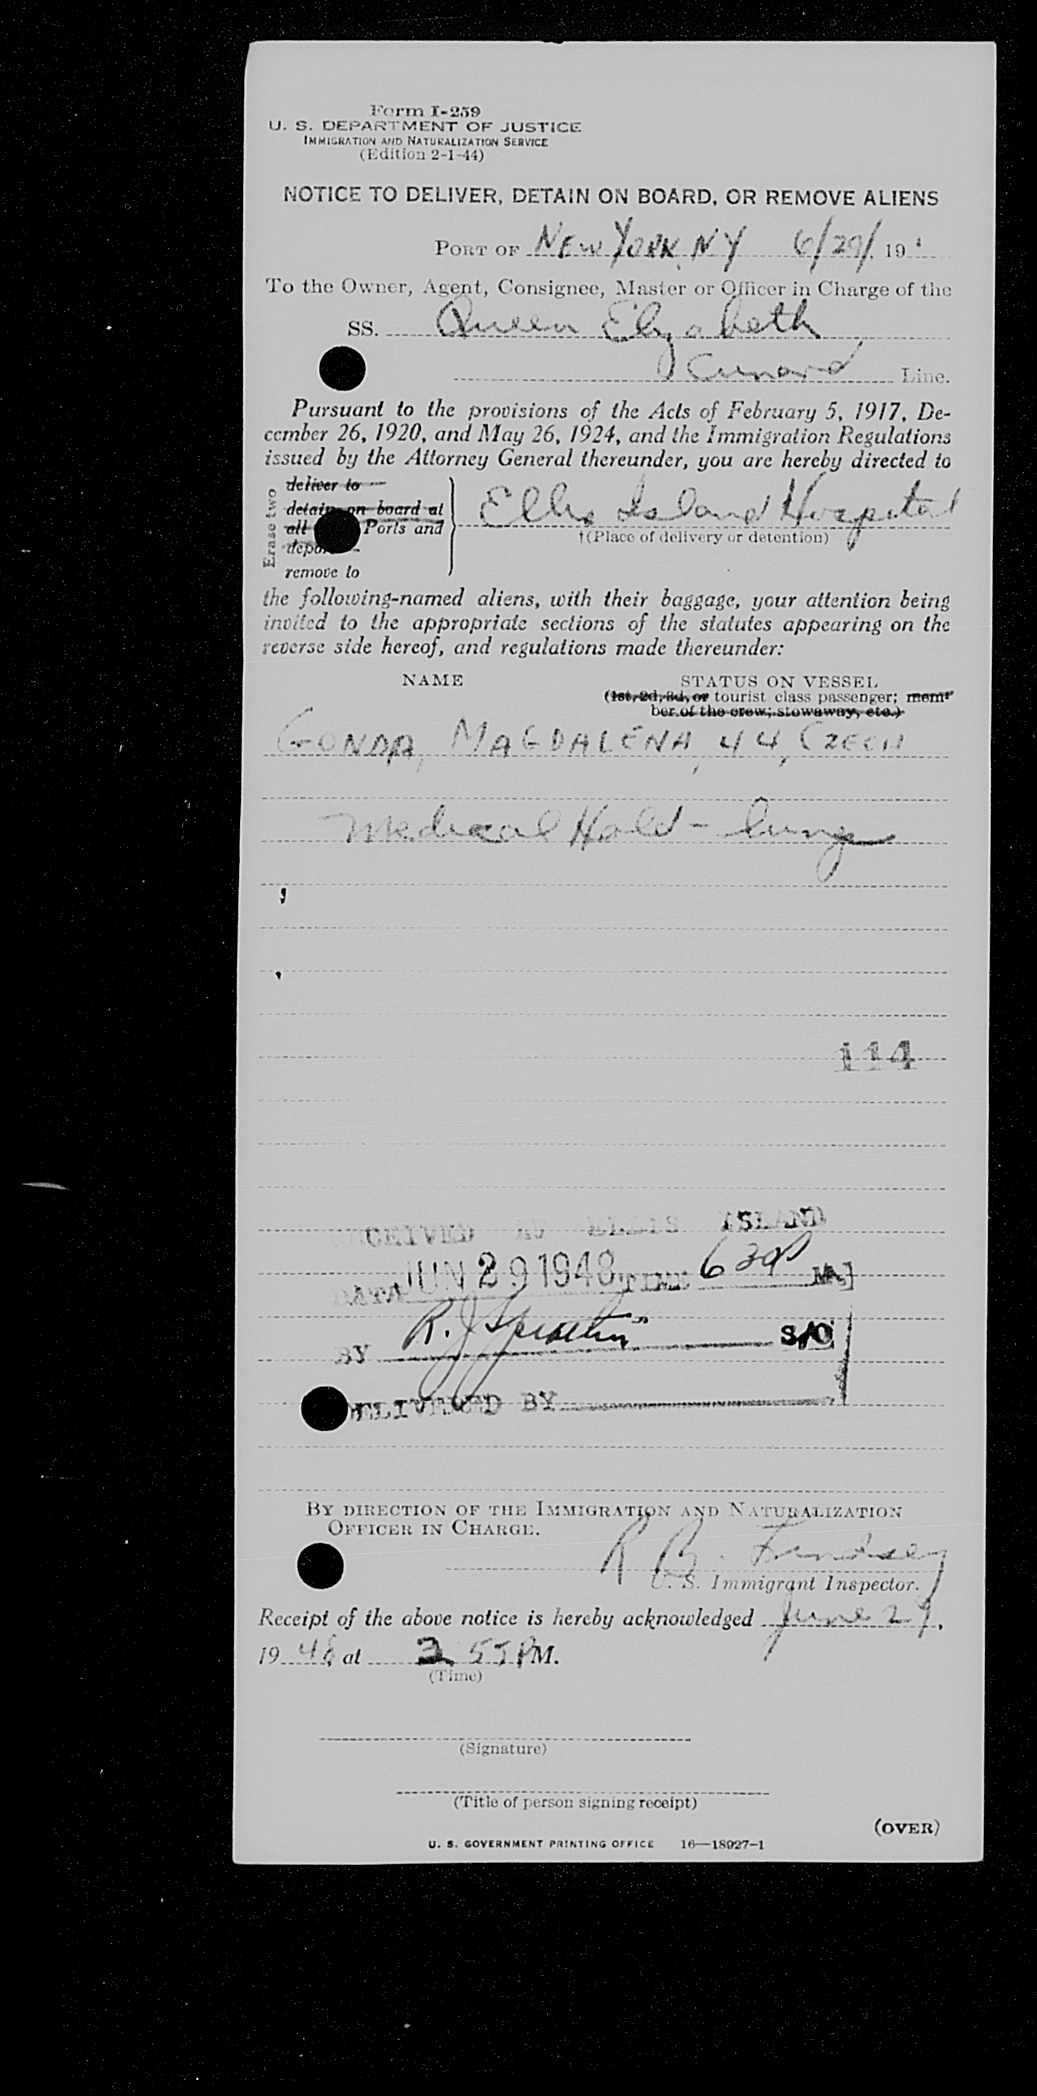 Form I-259
U. S. DEPARTMENT OF JUSTICE
IMMIGRATION AND NATURALIZATION SERVICE
(Edition 2-1-44)
NOTICE TO DELIVER, DETAIN ON BOARD, OR REMOVE ALIENS
PORT OF NEW YORK, NY 6/29/ 19
To the Owner, Agent, Consignee, Master or Officer in Charge of the
SS. Queen Elizabeth
Cunard Line.
Pursuant to the provisions of the Acts of February 5, 1917, De-
cember 26, 1920, and May 26, 1924, and the Immigration Regulations
issued by the Attorney General thereunder, you are hereby directed to
Erase two
deliver to
detain on board at
all Ports and
remove to
Ellis Island Hospital
†(Place of delivery or detention)
the following-named aliens, with their baggage, your attention being
invited to the appropriate sections of the statutes appearing on the
reverse side hereof, and regulations made thereunder:
NAME STATUS ON VESSEL
(1st, 2d, 3d, or tourist class passenger; mem-
ber of the crew; stowaway, etc.)
GONDA, MAGDALENA, 44, CZECH
Medical Hold - lungs
114
RECEIVED AT ELLIS ISLAND
DATE JUN 29 1948 TIME 630P M
BY R. J. S/O
DELIVERED BY
BY DIRECTION OF THE IMMIGRATION AND NATURALIZATION
OFFICER IN CHARGE.
R B. Lindsey
U. S. Immigrant Inspector.
Receipt of the above notice is hereby acknowledged June 29,
1948 at 2 55 PM.
(Time)
(Signature)
(Title of person signing receipt)
(OVER)
U. S. GOVERNMENT PRINTING OFFICE 16—18927-1